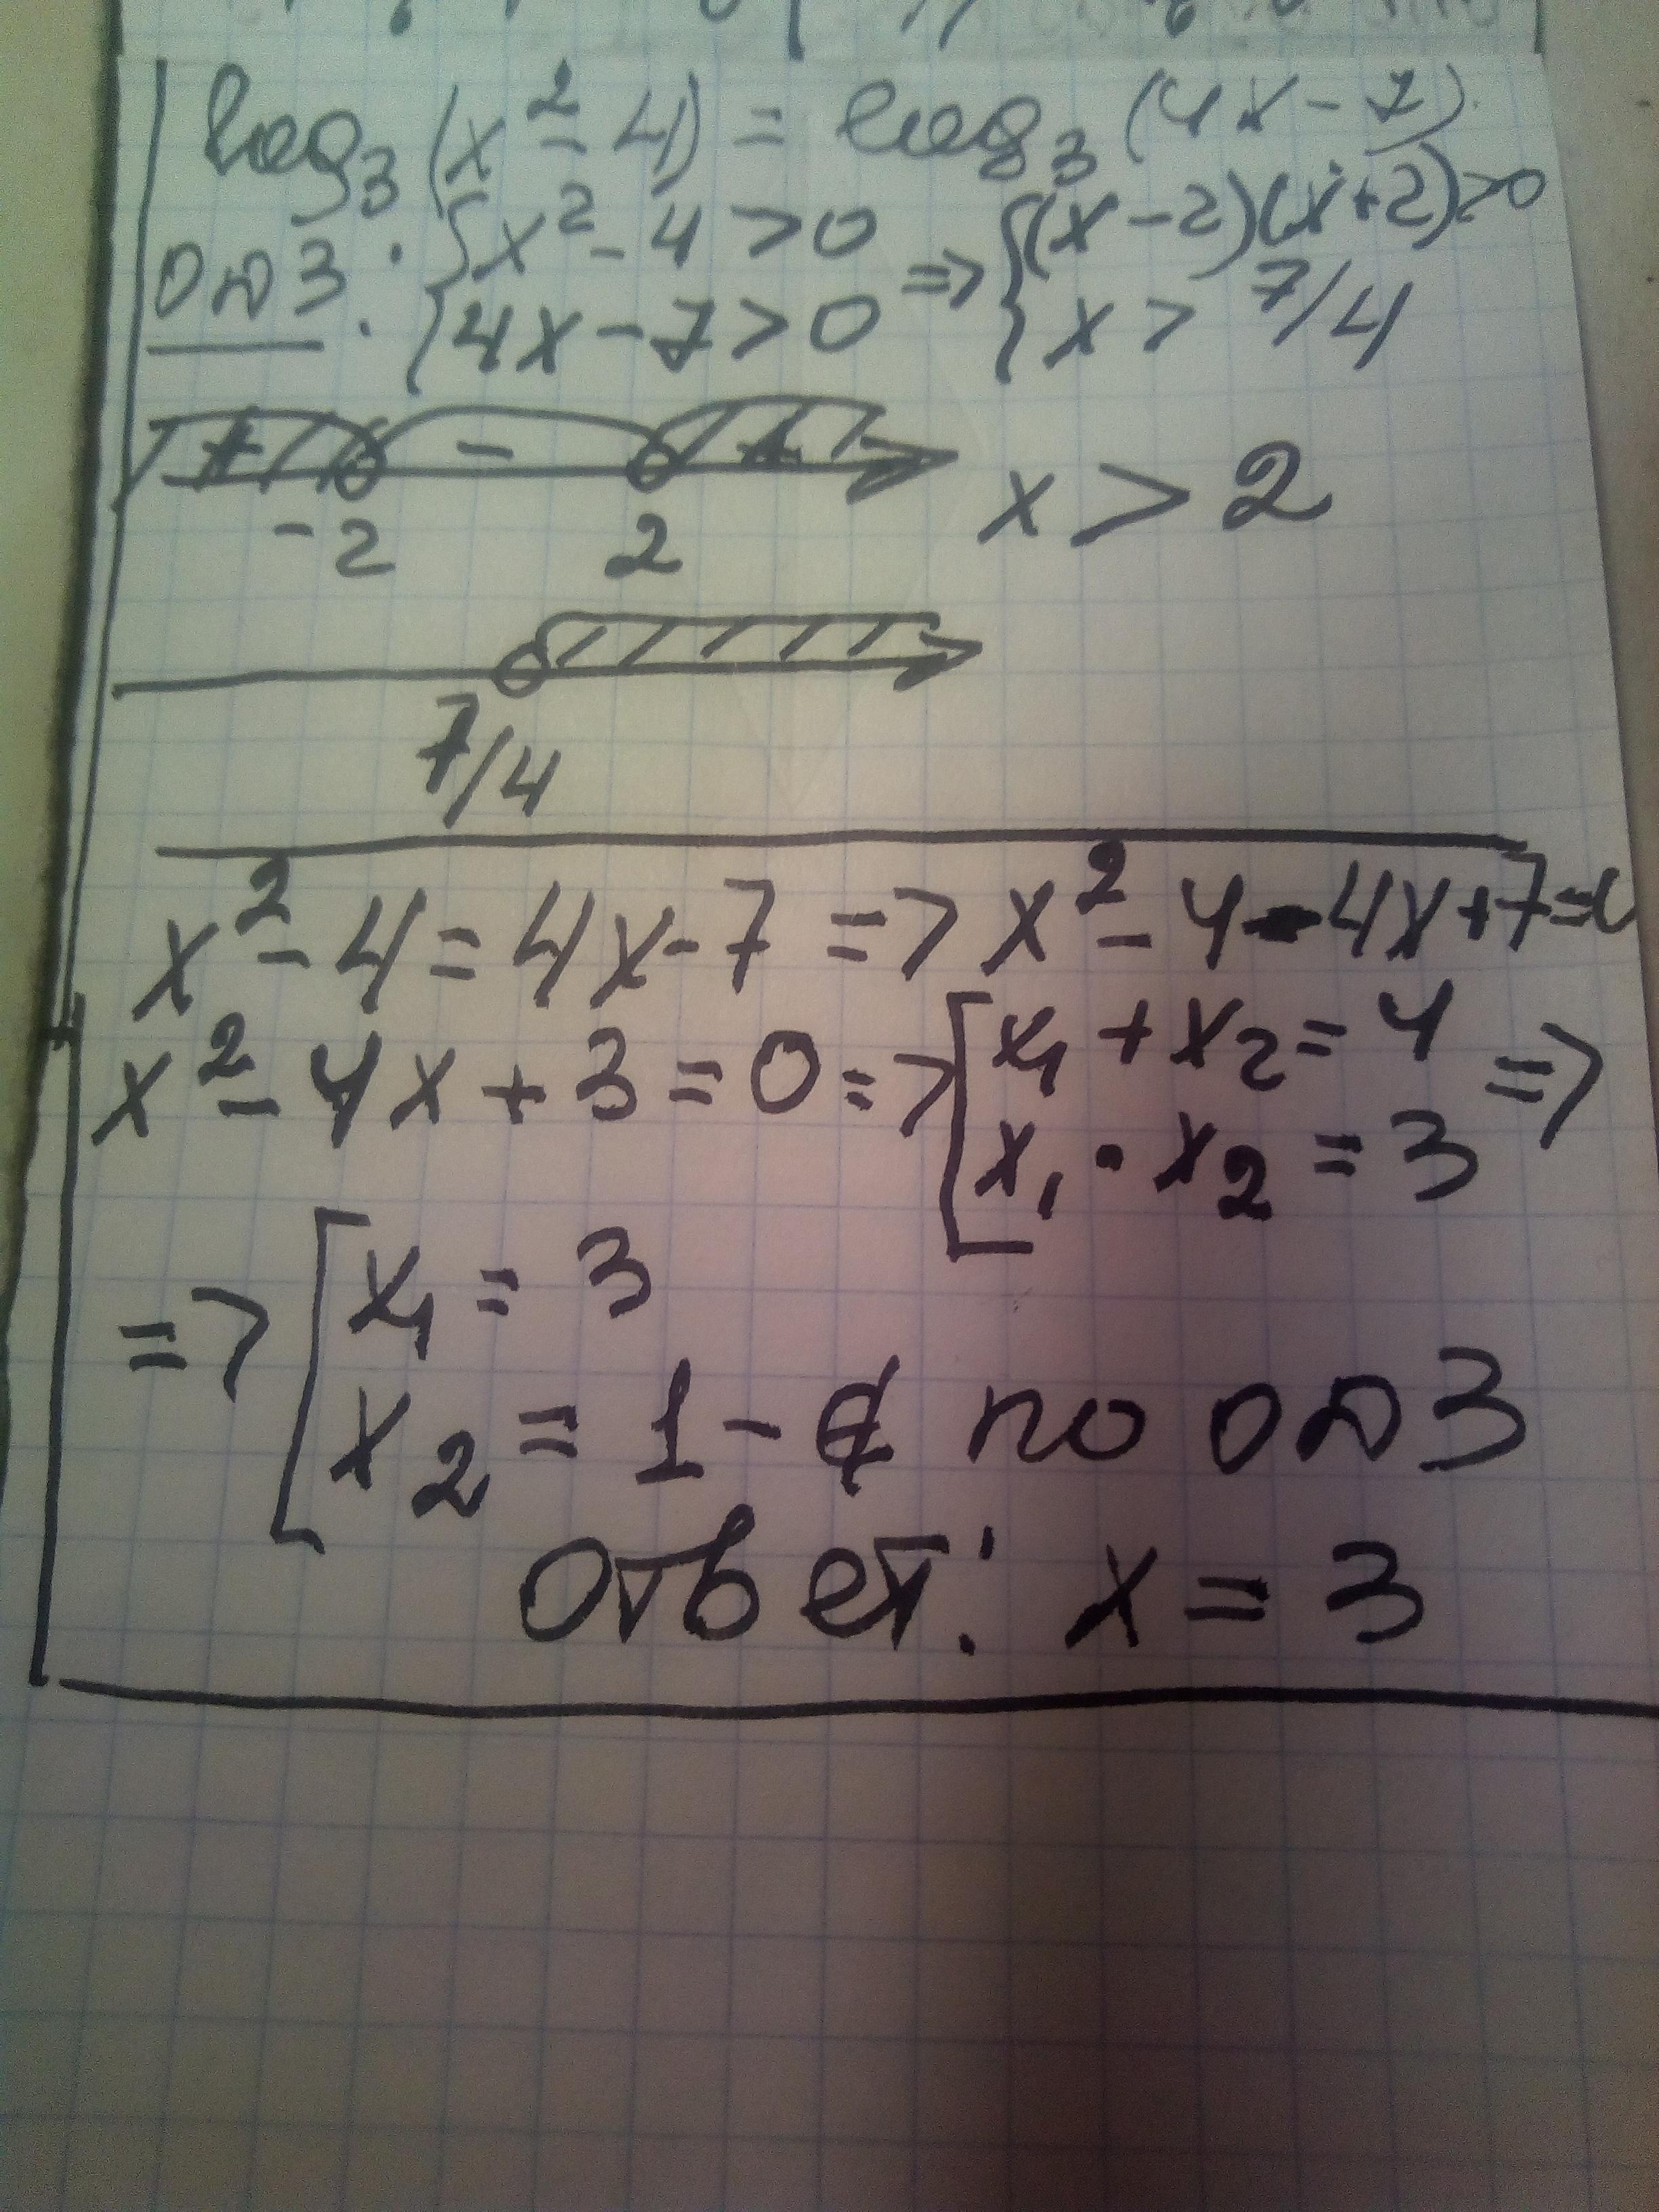 log₃(x² - 4) = log₃(4x - 7)
ОДЗ: { x² - 4 > 0 => { (x - 2)(x + 2) > 0
{ 4x - 7 > 0 { x > 7/4
+ - +
-2 2 x > 2
7/4
x² - 4 = 4x - 7 => x² - 4 - 4x + 7 = 0
x² - 4x + 3 = 0 => [ x₁ + x₂ = 4 =>
x₁ · x₂ = 3
=> [ x₁ = 3
x₂ = 1 - ∉ по ОДЗ
Ответ: x = 3